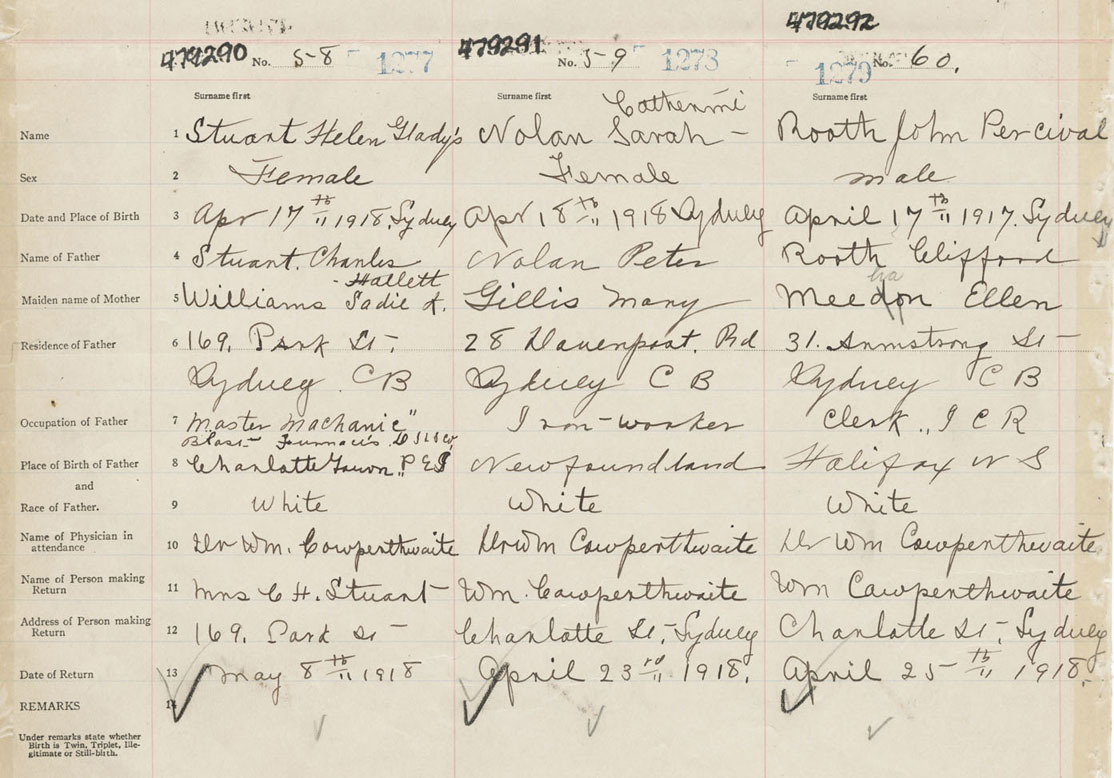 479290 No. 58 1277 479291 No. 59 1278 479292 1279 No. 60.
Surname first Surname first Surname first
Catherine
Name 1 Stuart Helen Gladys Nolan Sarah - Rooth John Percival
Sex 2 Female Female male
Date and Place of Birth 3 Apr 17th 1918. Sydney Apr 18th 1918 Sydney April 17th 1917. Sydney
Name of Father 4 Stuart. Charles Nolan Peter Rooth Clifford
- Hallett
Maiden name of Mother 5 Williams Sadie A. Gillis Mary Ellen
Residence of Father 6 169. Park St - 28 Davenport. Rd 31. Armstrong St -
Sydney. C B Sydney C B Sydney C B
Occupation of Father 7 Master Machanic" Iron-worker Clerk ,, I C R
Blast - Furnaces.
Place of Birth of Father 8 CharlotteTown ,, P E I Newfoundland Halifax N S
and
Race of Father. 9 White White White
Name of Physician in
attendance 10 Dr Wm. Cowperthwaite Dr Wm Cowperthwaite Dr Wm Cowperthwaite
Name of Person making
Return 11 Mrs C H. Stuart Wm. Cowperthwaite Wm Cowperthwaite
Address of Person making
Return 12 169. Park St - Charlotte St, Sydney Charlotte St, Sydney
Date of Return 13 May 8th 1918 April 23rd 1918. April 25th 1918.
REMARKS 14
Under remarks state whether
Birth is Twin, Triplet, Ille-
gitimate or Still-birth.